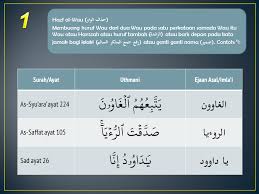 1
Hazf al-Wau (حذف الواو)
Membuang huruf Wau dari dua Wau pada satu perkataan samada Wau itu
Wau atau Hamzah atau huruf tambahan atau baris depan pada kata
jamak bagi lelaki (رفع جمع المذكر السالم) atau ganti ganti nama (ضمير). Contoh":
Surah/Ayat
Uthmani
Ejaan Asal/Imla'i
As-Syu'ara' ayat 224
يَتَّبِعُهُمُ ٱلْغَاوُۥنَ
الغاوون
As-Saffat ayat 105
صَدَّقْتَ ٱلرُّءْيَآ
الروءيا
Sad ayat 26
يَـٰدَاوُۥدُ إِنَّا
يا داوود